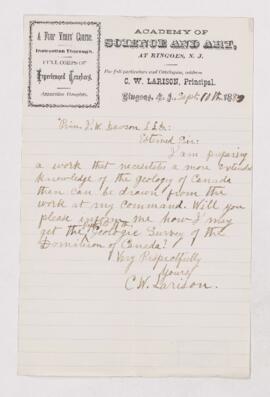 A Four Years' Course.
Instruction Thorough.
FULL CORPS OF
Experienced Teachers.
Apparatus Complete.
ACADEMY OF
SCIENCE AND ART,
AT RINGOES, N. J.
For full particulars and Catalogues, address
C. W. LARISON, Principal.
Ringoes, N. J. Sept 10th 1883
Prin. J. W. Dawson L.L.D.:
Esteemed Sir:
I am preparing
a work that necessitates a more extended
knowledge of the geology of Canada
then can be drawn from the
work at my command. Will you
please inform me how I may
get the Geologic Survey of the
Dominion of Canada?
Very Respectfully
Yours
C. W. Larison.